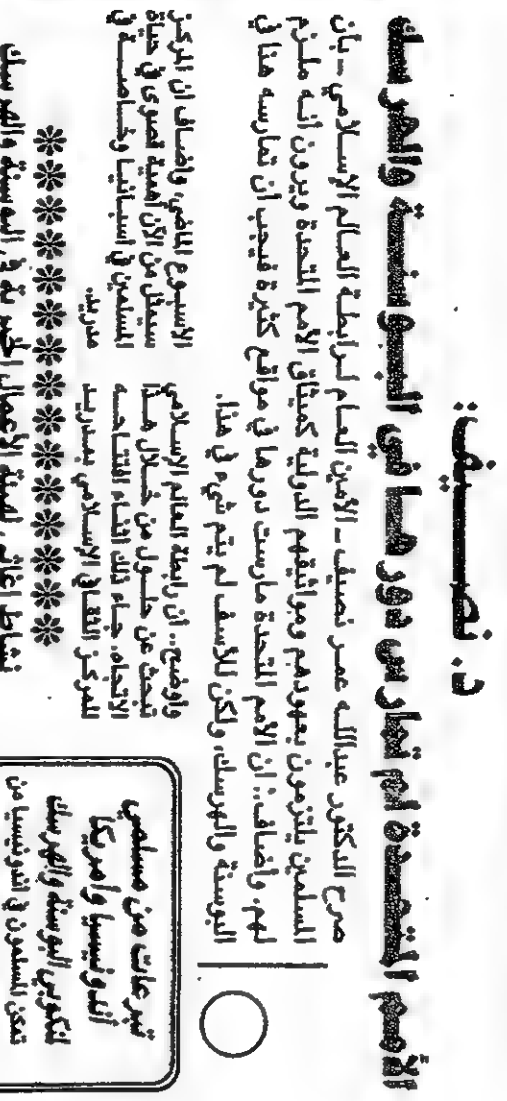 د. نصيف:
الأمم المتحدة لم تمارس دورها في البوسنة والهرسك
صرح الدكتور عبدالله عمر نصيف - الأمين العام لرابطة العالم الإسلامي - بأن
المسلمين يلتزمون بعهودهم ومواثيقهم الدولية كميثاق الأمم المتحدة ويرون أنه ملزم
لهم. وأضاف: ان الأمم المتحدة مارست دورها في مواقع كثيرة فيجب أن تمارسه هنا في
البوسنة والهرسك، ولكن للأسف لم يتم شيء في هذا.
وأوضح.. أن رابطة العالم الإسلامي
تبحث عن حلول من خلال هذا
الاتجاه. جاء ذلك اثناء افتتاحه
للمركز الثقافي الإسلامي بمدريد
الأسبوع الماضي، واضاف ان المركز
سيمثل من الآن أهمية قصوى في حياة
المسلمين في اسبانيا وخاصة في
مدريد.
تبرعات من مسلمي
أندونيسيا وأمريكا
لمنكوبي البوسنة والهرسك
تمكن المسلمون في اندونيسيا من
نشاط اغاثي لهيئة الأعمال الخيرية في البوسنة والهرسك